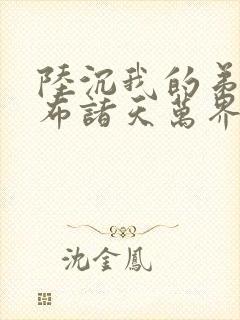 陸沉我的弟
布諸天萬界
沈金鳳